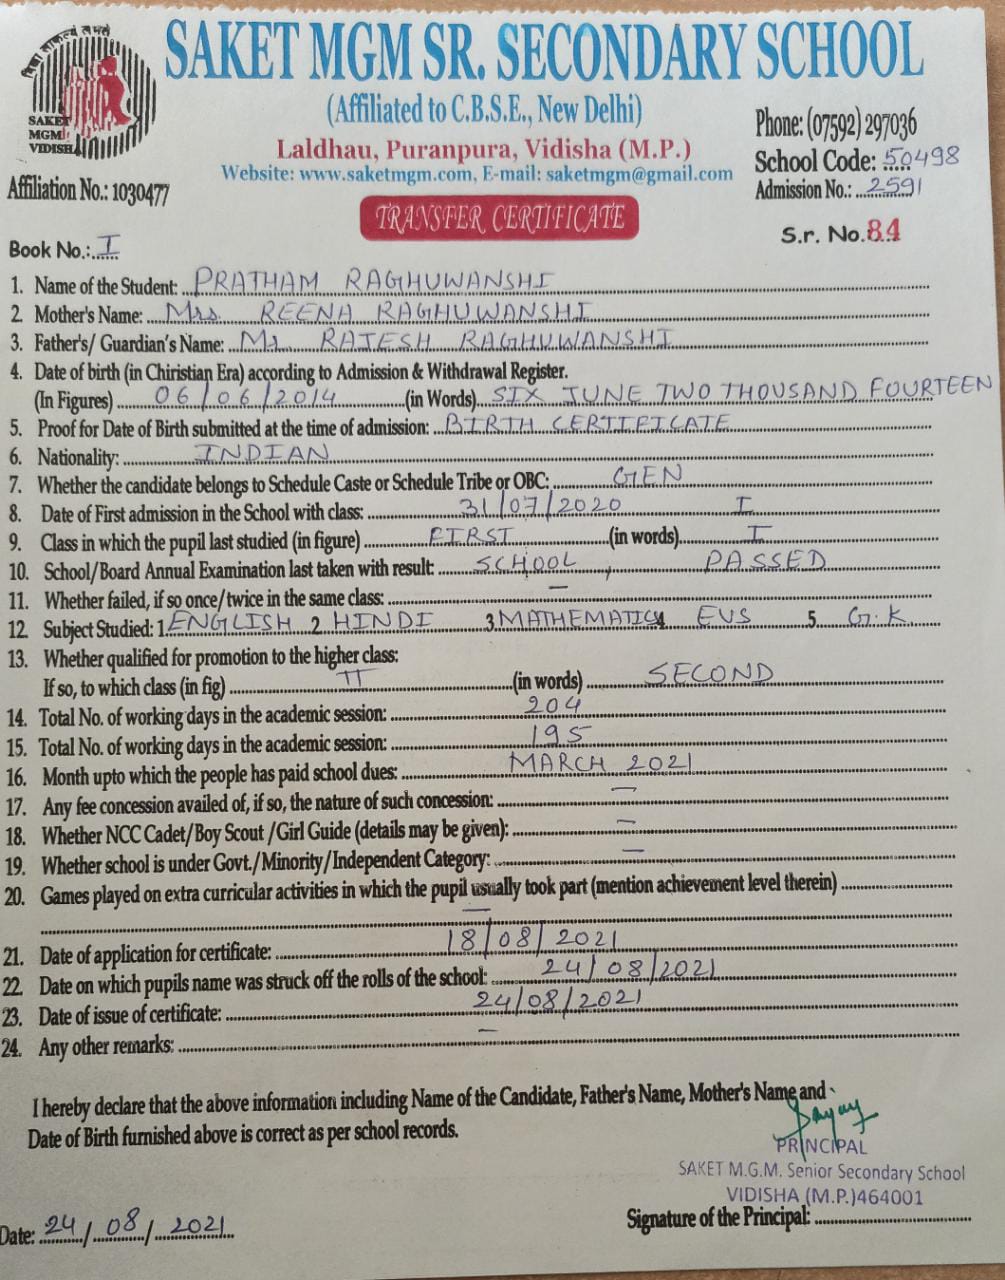 SAKET MGM SR. SECONDARY SCHOOL
(Affiliated to C.B.S.E., New Delhi)
Laldhau, Puranpura, Vidisha (M.P.)
Website: www.saketmgm.com, E-mail: saketmgm@gmail.com
SAKET
MGM
VIDISHA
Phone: (07592) 297036
School Code: 50498
Affiliation No.: 1030477
Admission No.: 2591
TRANSFER CERTIFICATE
Book No.: I
S.r. No. 84
1. Name of the Student: PRATHAM RAGHUWANSHI
2. Mother's Name: Mrs. REENA RAGHUWANSHI
3. Father's/ Guardian's Name: Mr. RAJESH RAGHUWANSHI
4. Date of birth (in Chiristian Era) according to Admission & Withdrawal Register.
(In Figures) 06/06/2014 (in Words) SIX JUNE TWO THOUSAND FOURTEEN
5. Proof for Date of Birth submitted at the time of admission: BIRTH CERTIFICATE
6. Nationality: INDIAN
7. Whether the candidate belongs to Schedule Caste or Schedule Tribe or OBC: GEN
8. Date of First admission in the School with class: 31/07/2020 I
9. Class in which the pupil last studied (in figure) FIRST (in words) I
10. School/Board Annual Examination last taken with result: SCHOOL , PASSED
11. Whether failed, if so once/twice in the same class: —
12. Subject Studied: 1. ENGLISH 2 HINDI 3 MATHEMATICS 4 EVS 5. G.K
13. Whether qualified for promotion to the higher class:
If so, to which class (in fig) II (in words) SECOND
14. Total No. of working days in the academic session: 204
15. Total No. of working days in the academic session: 195
16. Month upto which the people has paid school dues: MARCH 2021
17. Any fee concession availed of, if so, the nature of such concession: —
18. Whether NCC Cadet/Boy Scout /Girl Guide (details may be given): —
19. Whether school is under Govt./Minority/Independent Category: —
20. Games played on extra curricular activities in which the pupil usually took part (mention achievement level therein)
—
21. Date of application for certificate: 18/08/2021
22. Date on which pupils name was struck off the rolls of the school: 24/08/2021
23. Date of issue of certificate: 24/08/2021
24. Any other remarks: —
I hereby declare that the above information including Name of the Candidate, Father's Name, Mother's Name and
Date of Birth furnished above is correct as per school records.
PRINCIPAL
SAKET M.G.M. Senior Secondary School
VIDISHA (M.P.)464001
Signature of the Principal:
Date: 24/08/2021